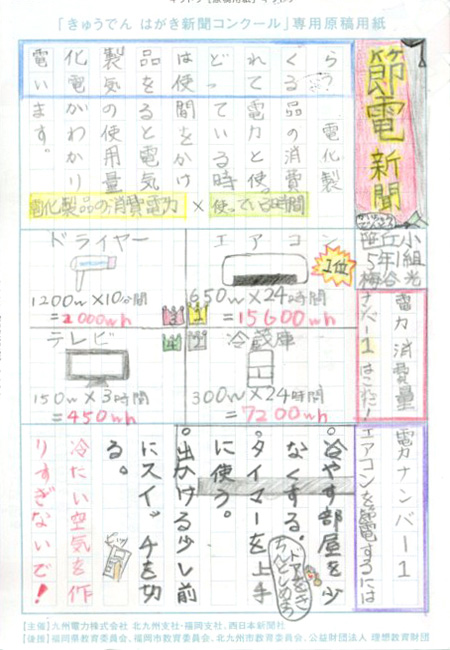 「きゅうでん はがき新聞コンクール」専用原稿用紙
節電新聞
笹丘小
5年1組
梅谷光
電化製品はどれくら
い電気を使ってる?
電化製
品の消費
電力と使
っている時
間をかけ
ると電気
の使用量
がわかり
ます。
電化製品の消費電力 × 使っている時間
電力消費量
ナンバー1はこれだ!
エアコン
1位
650w×24時間
=15600wh
1
ドライヤー
1200w×10分間
3
冷蔵庫
300w×24時間
=7200wh
2
テレビ
150w×3時間
=450wh
4
電力ナンバー1
エアコンを節電するには
・冷やす部屋を少
なくする。
ドアをき
ちんとしめよう
・タイマーを上手
に使う。
・出かける少し前
にスイッチを切
る。
ピッ
冷たい空気を作
りすぎないで!
【主催】九州電力株式会社 北九州支社・福岡支社、西日本新聞社
【後援】福岡県教育委員会、福岡市教育委員会、北九州市教育委員会、公益財団法人 理想教育財団